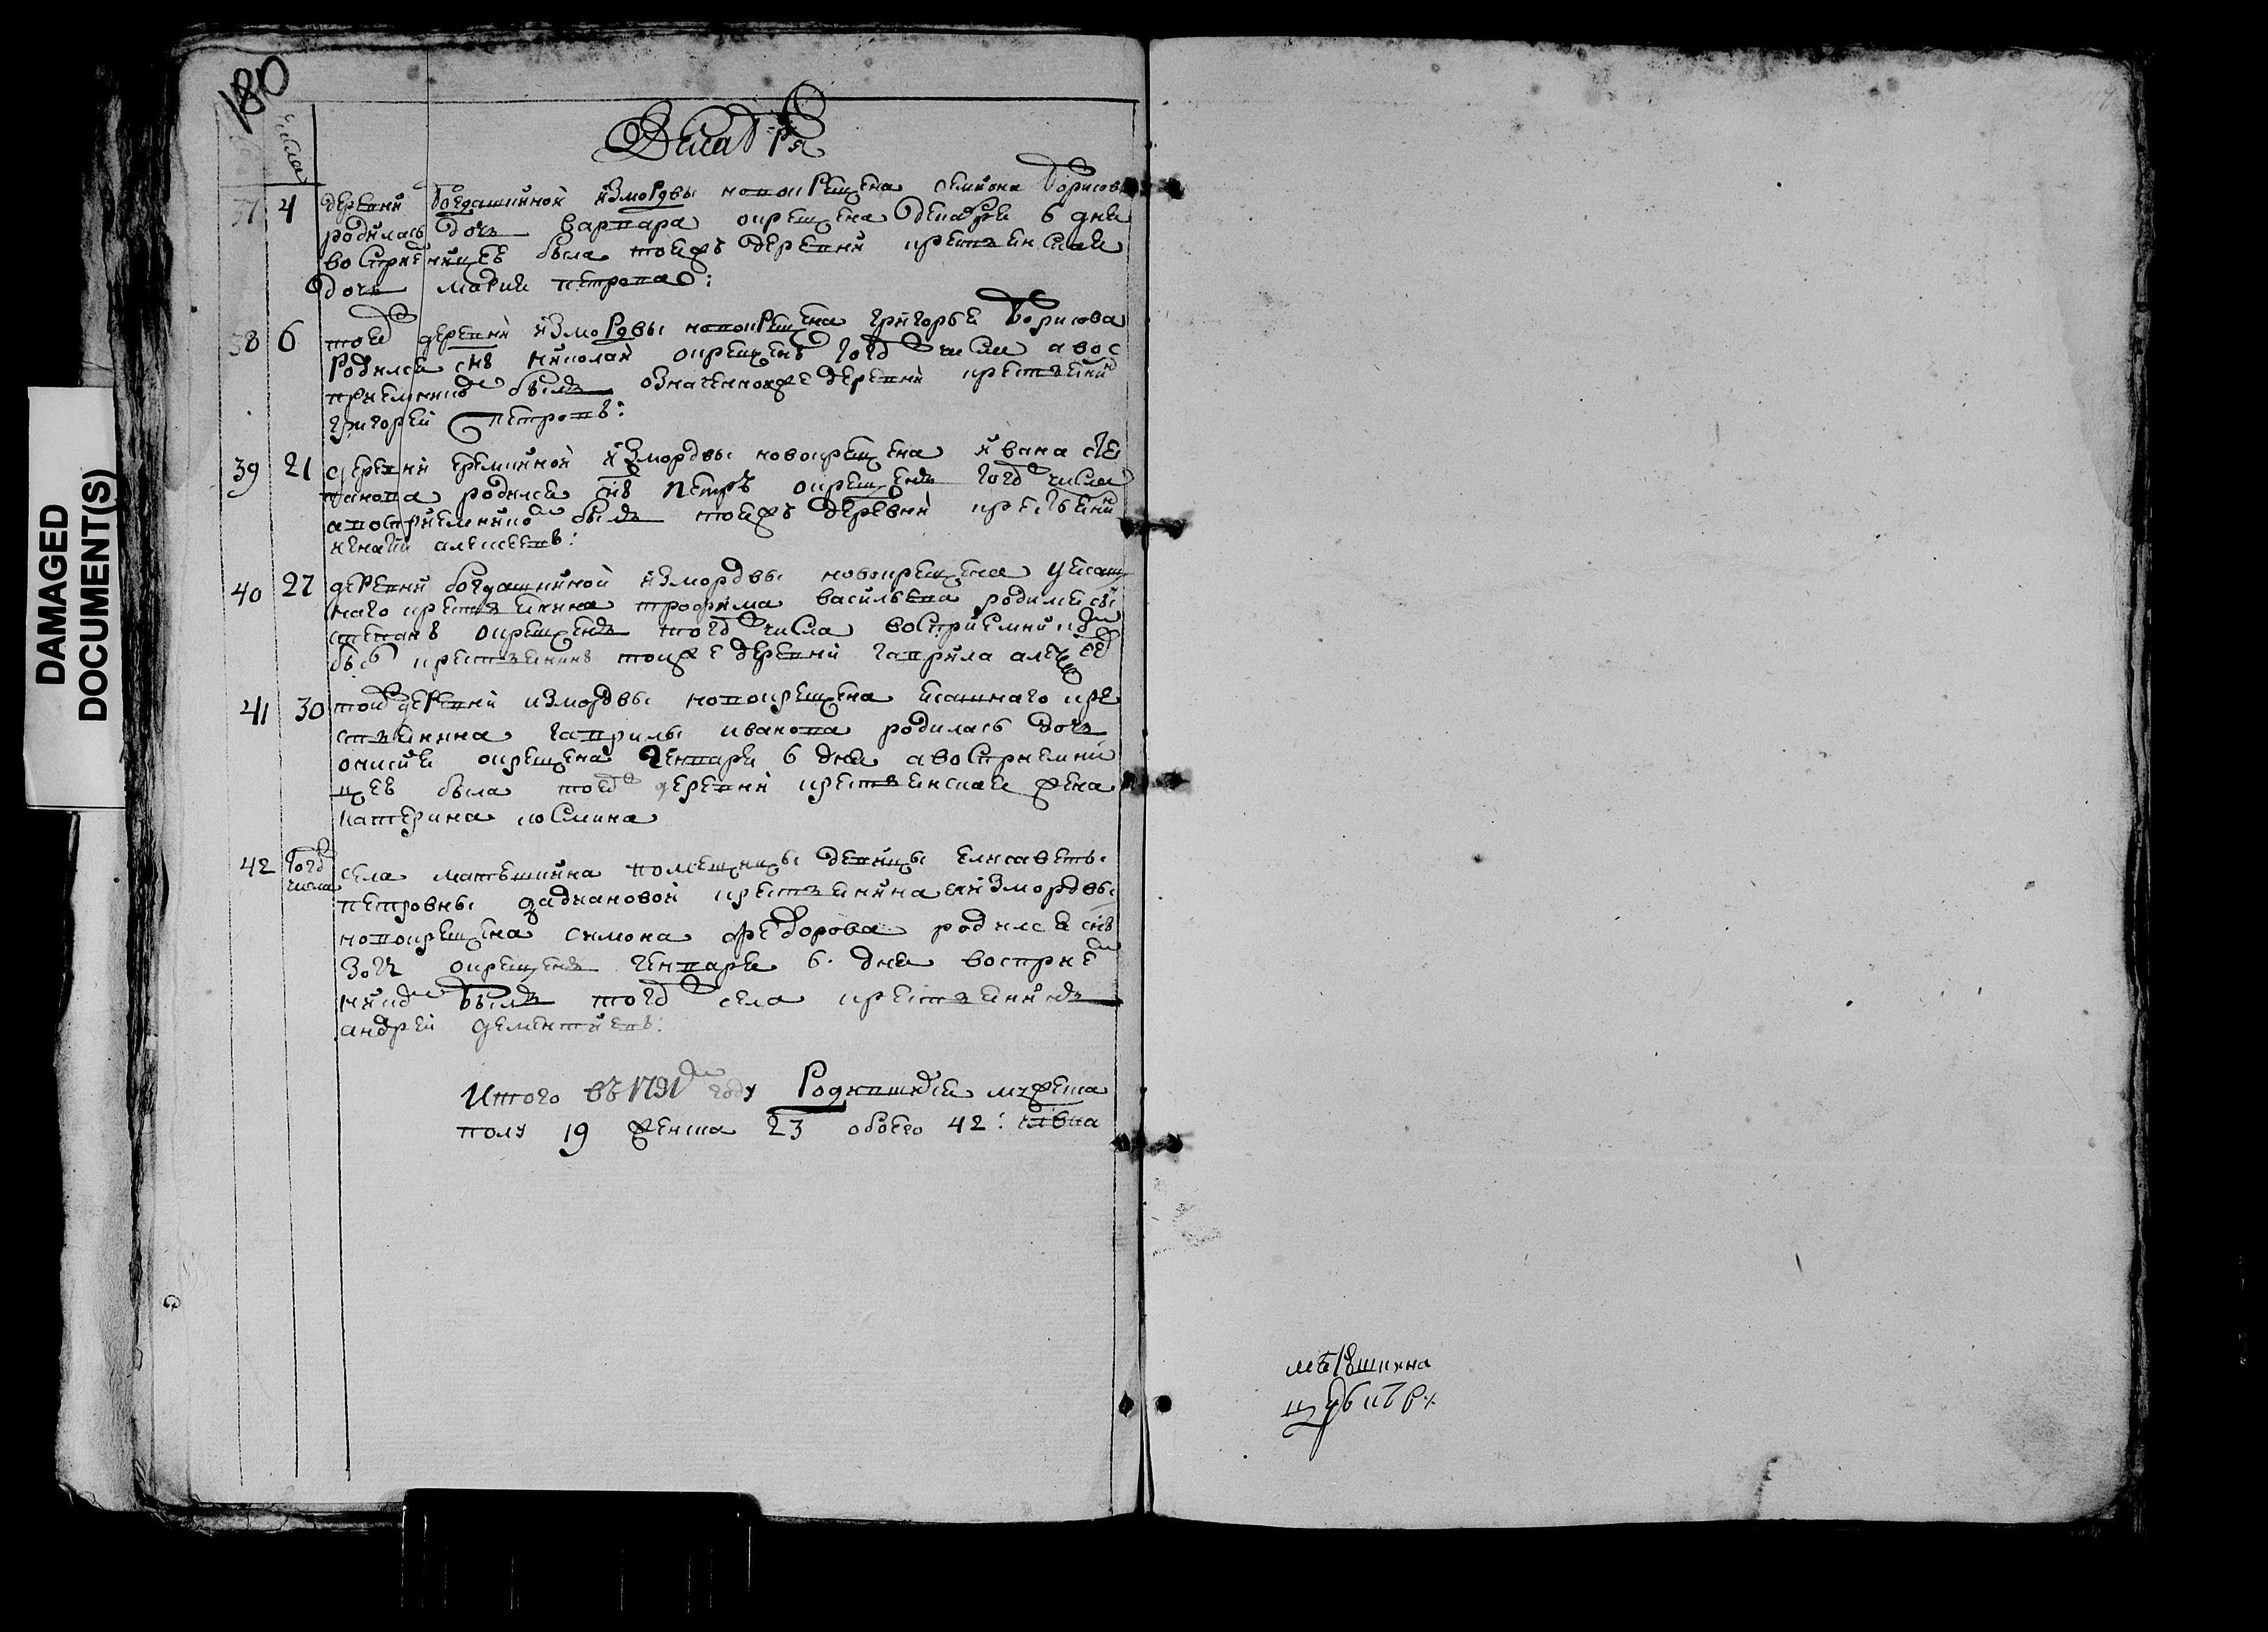 180
числа
Декабря
37 4 деревни богдашкиной измордвы новокрещена семиона борисов
родилась дочь варвара окрещена декабря 6 дня
восприемницею была тоежъ деревни крестьянская
дочь мария петрова:
38 6 тоеж деревни измордвы новокрещена григорья борисова
родился снъ николай окрещенъ тогож числа а вос
приемником былъ означенножъ деревни крестьянин
григорей петровъ:
39 21 деревни еремкиной измордвы новокрещена ивана сте
панова родился снъ петръ окрещенъ тогож числа
а восприемником былъ тоежъ деревни крестьянин
алексеевъ:
40 27 деревни богдашкиной измордвы новокрещена
наго крестьянина трофима васильева родился снъ
степанъ окрещенъ тогож числа восприемником
был крестьянинъ тояже деревни гаврила алексеев
41 30 тоиж деревни измордвы новокрещена ясашнаго кре
стьянина гаврилы иванова родилась дочь
окрещена генваря 6 дня а восприемни
цею была тоеж деревни крестьянская жена
катерина космина
42 тогож числа села помещицы девицы елисаветы
петровны крестьянина измордвы
новокрещена симона федорова родился снъ
окрещенъ генваря 6. дня восприе
ником былъ тогож села крестьянинъ
андрей дементиевъ:
Итого въ 1791м году Родившихся мужеска
полу 19 женска 23 обоего 42: